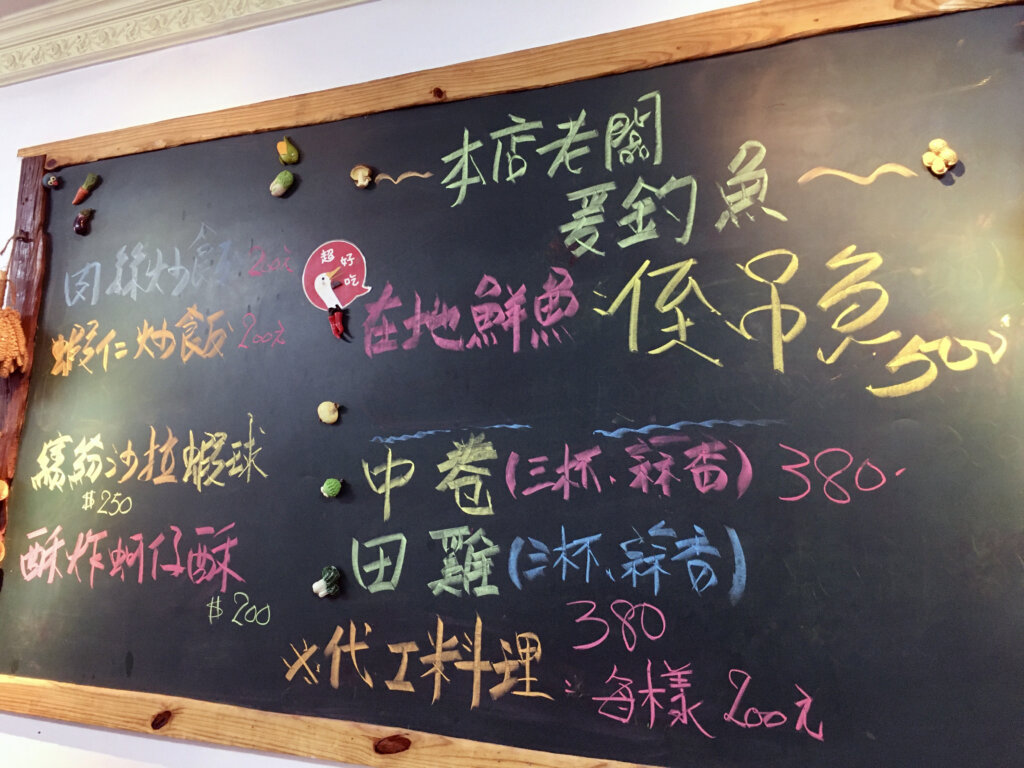 本店老闆
愛釣魚
肉絲炒飯 200元
超好吃
蝦仁炒飯 200元
在地鮮魚:倕吊魚 500
繽紛沙拉蝦球
$250
中卷(三杯、蒜香) 380.
酥炸蚵仔酥
$200
田雞(三杯、蒜香)
380
※代工料理:每樣200元